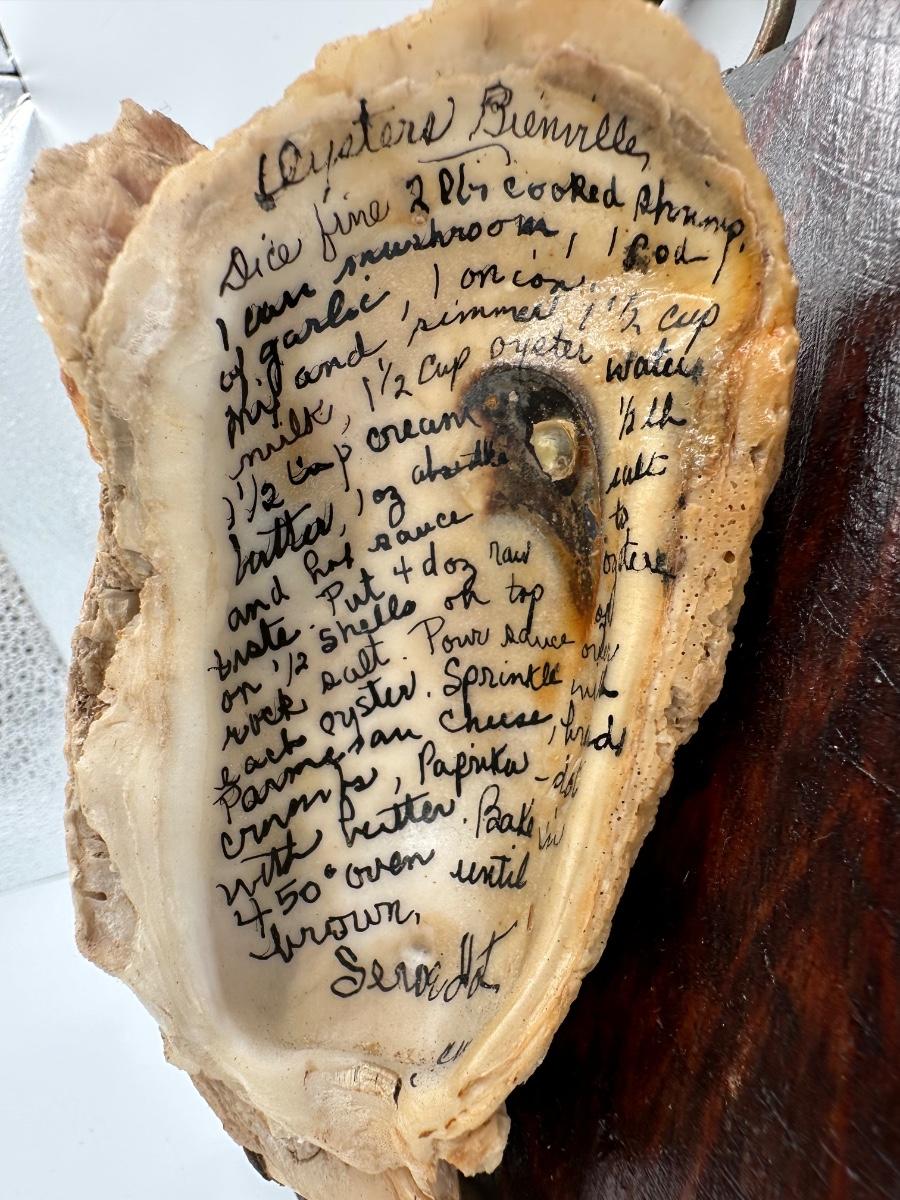 Oysters Bienville
Dice fine 2 lbs cooked shrimp,
1 can mushroom, 1 pod
of garlic, 1 onion.
Mix and simmer, 1 1/2 cup
milk, 1 1/2 cup oyster water,
1 1/2 cup cream 1/2 lb
butter, 1 oz absinthe salt
and hot sauce to
taste. Put 4 doz raw oysters
on 1/2 shells on top of
rock salt. Pour sauce over
each oyster. Sprinkle with
Parmesan cheese, bread
crumbs, Paprika - dot
with butter. Bake in
450° oven until
brown.
Serve Hot